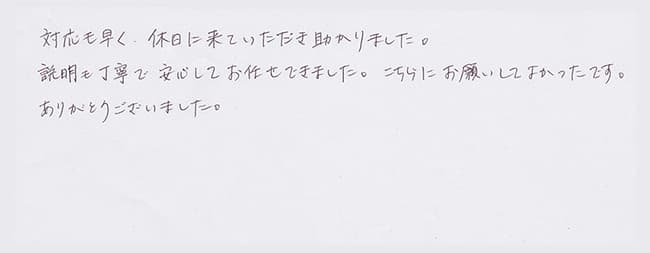 対応も早く、休日に来ていただき助かりました。
説明も丁寧で安心してお任せできました。こちらにお願いしてよかったです。
ありがとうございました。